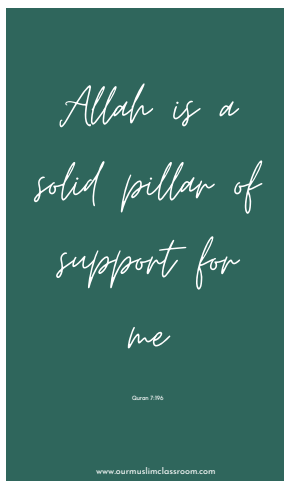 Allah is a
solid pillar of
support for
me
Quran 7:196
www.ourmuslimclassroom.com